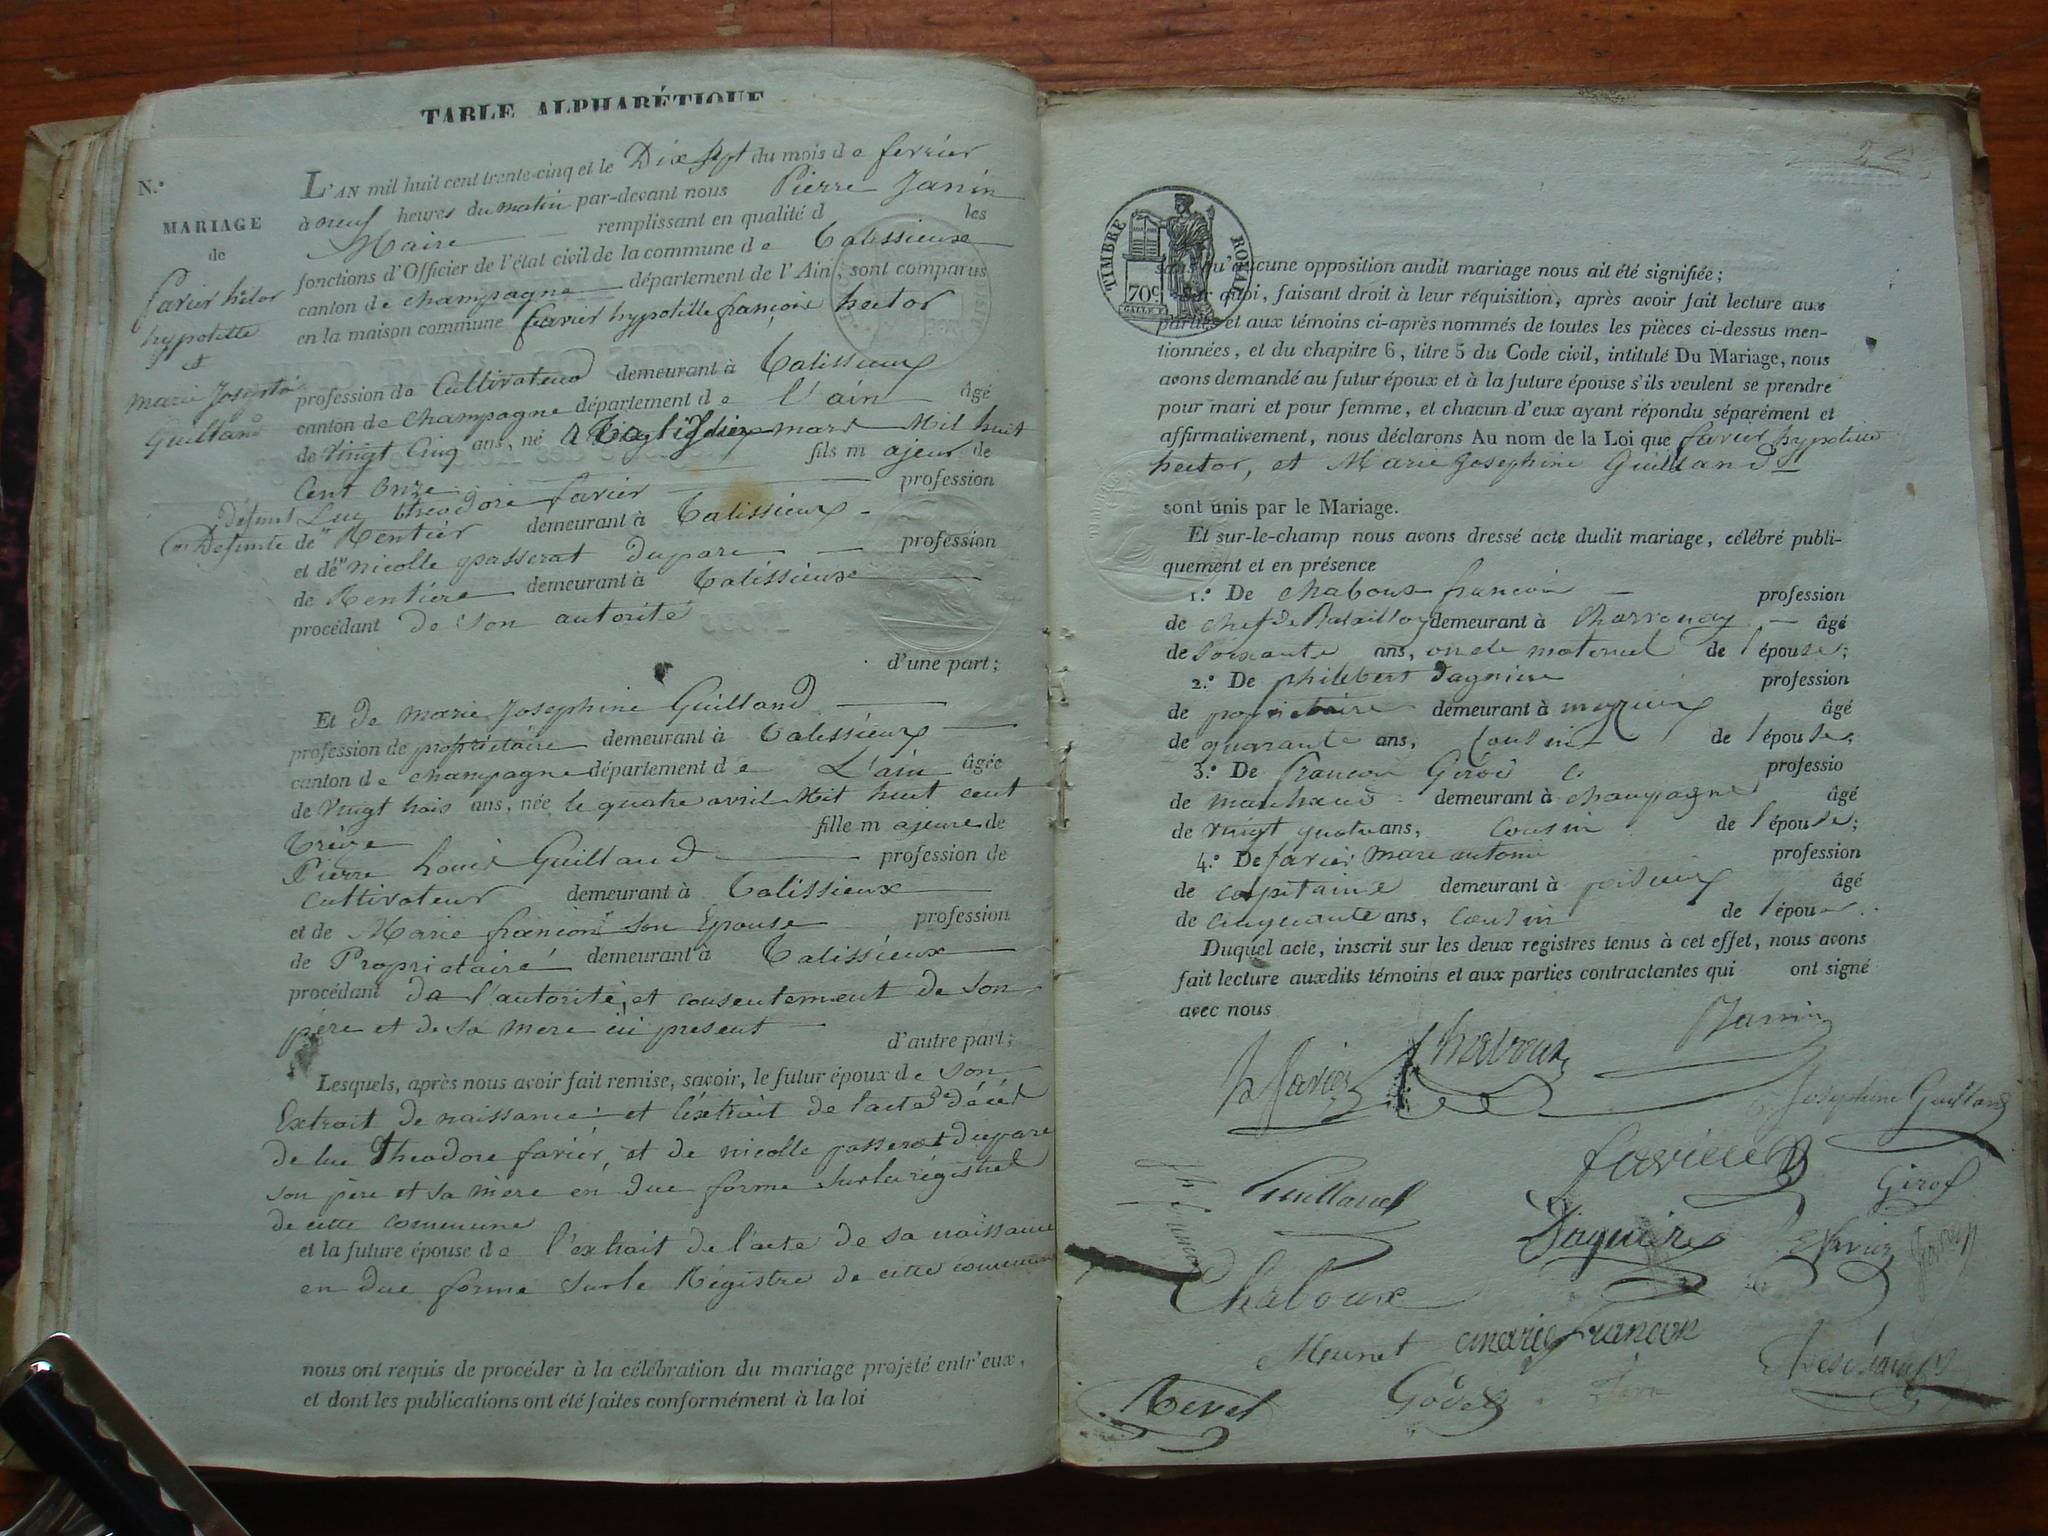 TABLE ALPHABÉTIQUE
N.°
MARIAGE
de
favier hector
hypolitte
et
marie Josephe
Guilland
L'AN mil huit cent trente-cinq et le Dix Sept du mois de fevrier
à neuf heures du matin par-devant nous Pierre Janin
Maire remplissant en qualité d les
fonctions d'Officier de l'état civil de la commune de talissieux
canton de champagne département de l'Ain, sont comparus
en la maison commune favier hypolitte françois hector
profession de Cultivateur demeurant à talissieux
canton de champagne département de l'ain âgé
de vingt Cinq ans, né à mars Mil huit
Cent onze fils majeur de
Défunt Luc theodore favier profession
de Rentier demeurant à talissieux
et de Defunte nicolle passerat dupare profession
de Rentière demeurant à talissieux
procédant de son autorité
d'une part;
Et de marie Josephine Guilland
profession de propriétaire demeurant à talissieux
canton de champagne département de L'ain âgée
de vingt trois ans, née le quatre avril Mil huit cent
treize fille majeure de
Pierre Louis Guilland profession de
Cultivateur demeurant à talissieux
et de Marie françon son Epouse profession
de Propriétaire demeurant à talissieux
procédant de l'autorité, et consentement de son
père et de sa mere ici present
d'autre part;
Lesquels, après nous avoir fait remise, savoir, le futur époux de son
Extrait de naissance et l'extrait de l'acte de décès
de luc Theodore favier, et de nicolle passerat dupare
son père et sa mère en due forme sur les régistres
de cette commune
et la future épouse de l'extrait de l'acte de sa naissance
en due forme sur le Régistre de cette commune
nous ont requis de procéder à la célébration du mariage projeté entr'eux,
et dont les publications ont été faites conformément à la loi
TIMBRE ROYAL
70c
sans qu'aucune opposition audit mariage nous ait été signifiée;
Sur quoi, faisant droit à leur réquisition, après avoir fait lecture aux
parties et aux témoins ci-après nommés de toutes les pièces ci-dessus men-
tionnées, et du chapitre 6, titre 5 du Code civil, intitulé Du Mariage, nous
avons demandé au futur époux et à la future épouse s'ils veulent se prendre
pour mari et pour femme, et chacun d'eux ayant répondu séparément et
affirmativement, nous déclarons Au nom de la Loi que favier hypolitte
hector, et Marie Josephine Guilland
sont unis par le Mariage.
Et sur-le-champ nous avons dressé acte dudit mariage, célébré publi-
quement et en présence
1.° De chaboux françois profession
de chef de Bataillon demeurant à Charvonay âgé
de soixante ans, oncle maternel de l'épouse;
2.° De philibert Dagnieu profession
de propriétaire demeurant à âgé
de quarante ans, cousin de l'épouse;
3.° De françois Girod profession
de marchand demeurant à champagne âgé
de vingt quatre ans, cousin de l'épouse;
4.° De favier marc antoine profession
de capitaine demeurant à âgé
de cinquante ans, cousin de l'époux.
Duquel acte, inscrit sur les deux registres tenus à cet effet, nous avons
fait lecture auxdits témoins et aux parties contractantes qui ont signé
avec nous
h favier Chaboux Janin
Josephine Guilland
Guilland favier Girod
favier
Chaboux
Meunet marie francon
Revel Godet